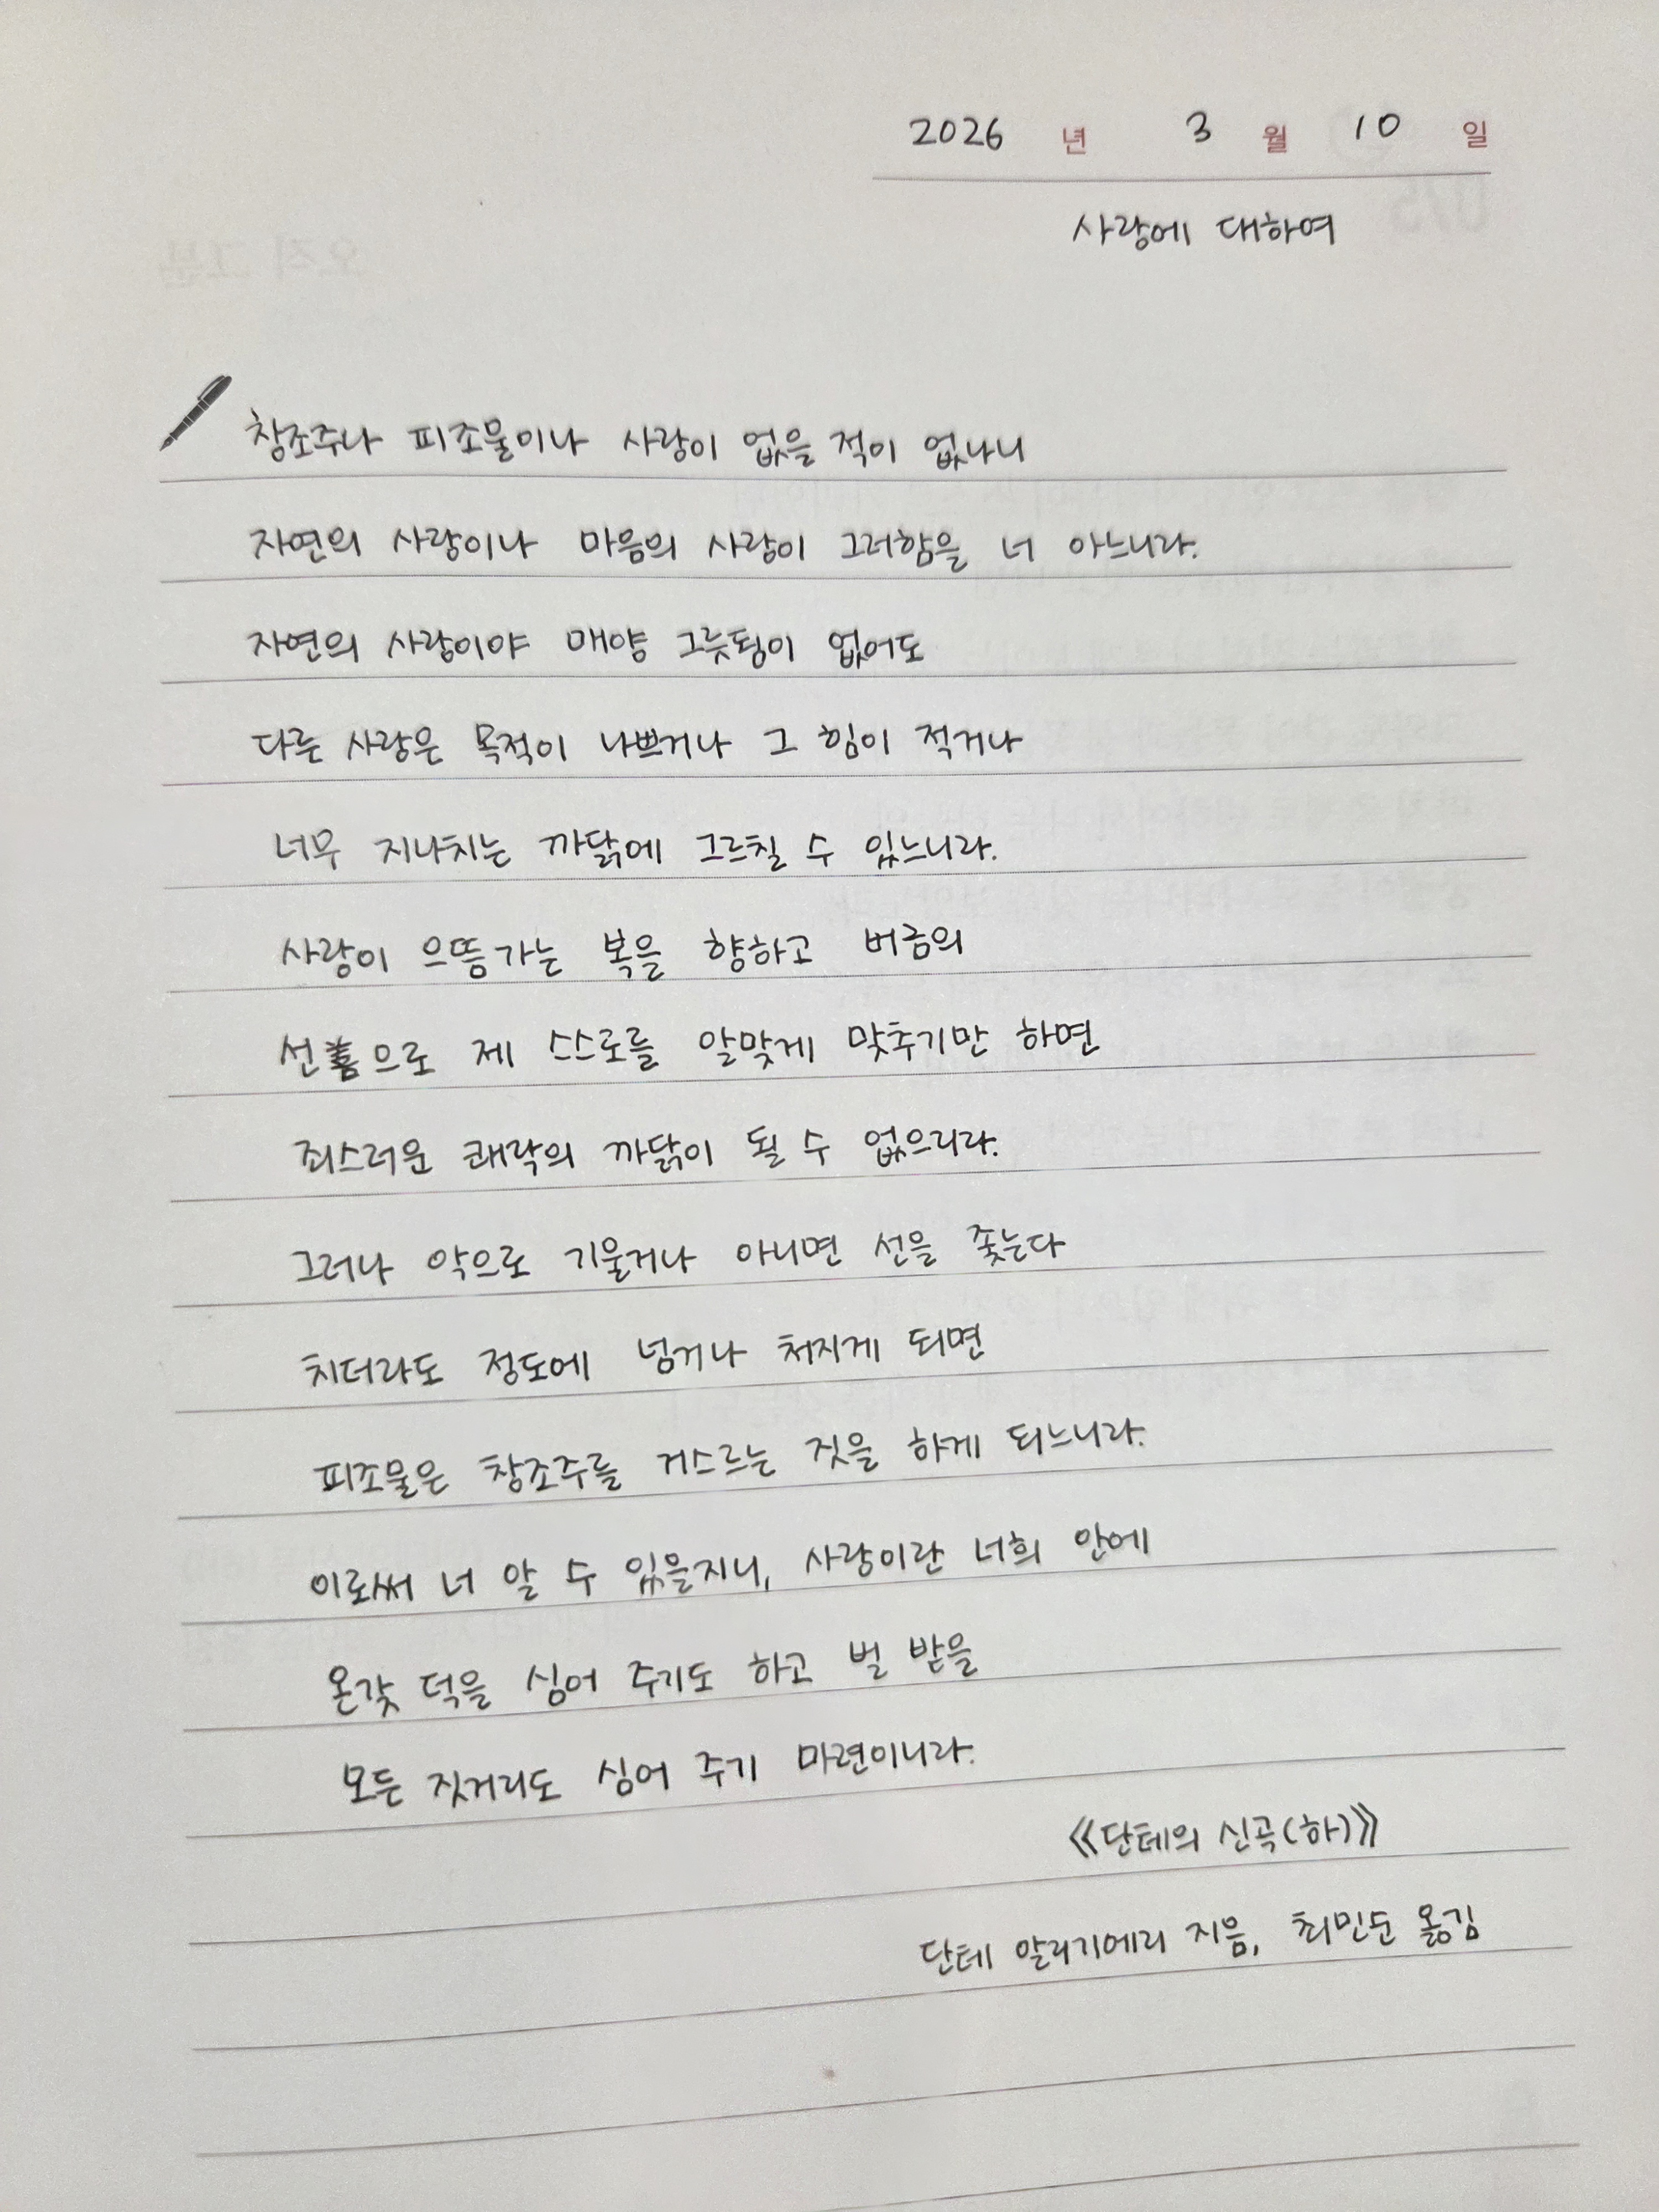 2026 년 3 월 10 일
사랑에 대하여
창조주나 피조물이나 사랑이 없을 적이 없나니
자연의 사랑이나 마음의 사랑이 그러함을 너 아느니라.
자연의 사랑이야 매양 그릇됨이 없어도
다른 사랑은 목적이 나쁘거나 그 힘이 적거나
너무 지나치는 까닭에 그르칠 수 있느니라.
사랑이 으뜸가는 복을 향하고 버금의
선善으로 제 스스로를 알맞게 맞추기만 하면
죄스러운 쾌락의 까닭이 될 수 없으리라.
그러나 악으로 기울거나 아니면 선을 좇는다
치더라도 정도에 넘거나 처지게 되면
피조물은 창조주를 거스르는 짓을 하게 되느니라.
이로써 너 알 수 있을지니, 사랑이란 너희 안에
온갖 덕을 심어 주기도 하고 벌 받을
모든 짓거리도 심어 주기 마련이니라.
《단테의 신곡(하)》
단테 알리기에리 지음, 최민순 옮김